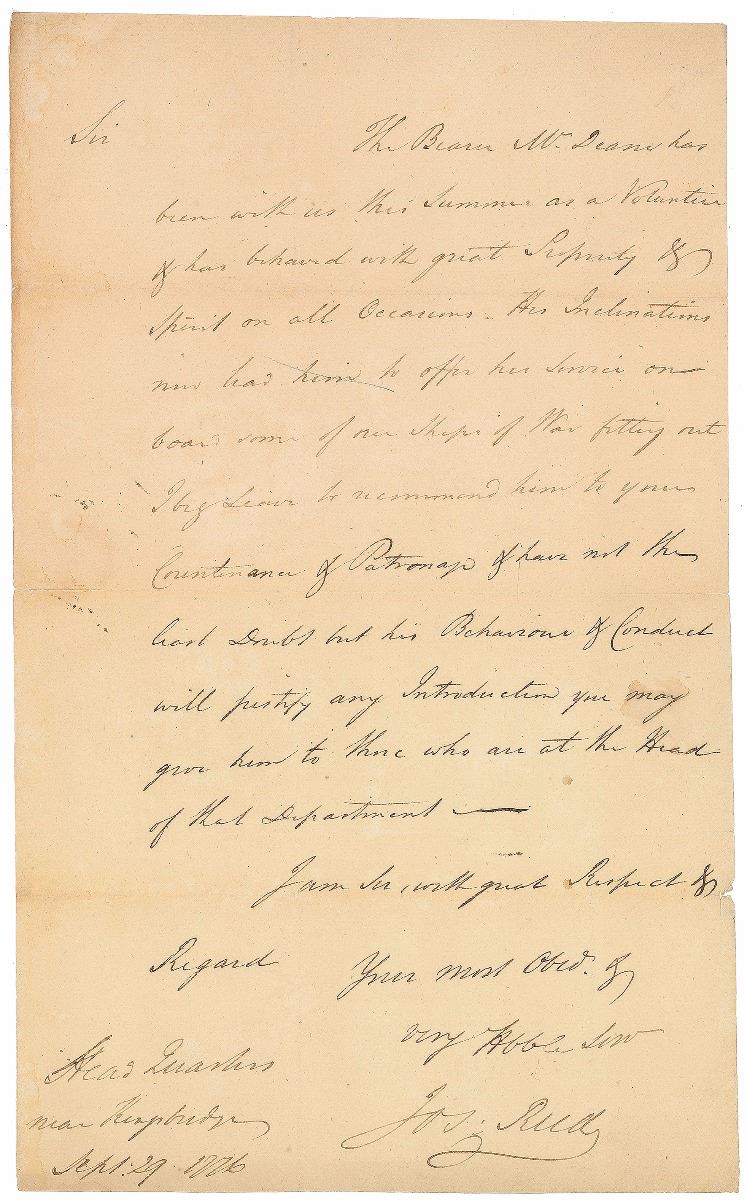 Sir The Bearer Mr. Deane has
been with us this Summer as a Volunteer
& has behaved with great &
Spirit on all Occasions. His Inclinations
now lead him to offer his Service on
board some of our Ships of War fitting out
I beg Leave to recommend him to your
Countenance & Patronage & have not the
least Doubt but his Behaviour & Conduct
will justify any Introduction you may
give him to those who are at the Head
of that Department —
I am Sir, with great Respect &
Regard Your most Obed. &
very Hbble Serv
Jos: Reed
Head Quarters
near Kingsbridge
Sept. 29 1776